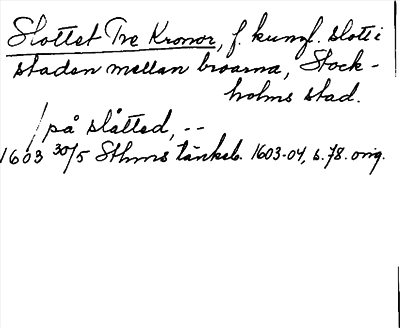 Slottet Tre Kronor, f. kungl. slott i
staden mellan broarna, Stock-
holms stad.
/ på slåtted, --
1603 30/5 Sthms tänkeb. 1603-04, s. 78. orig.